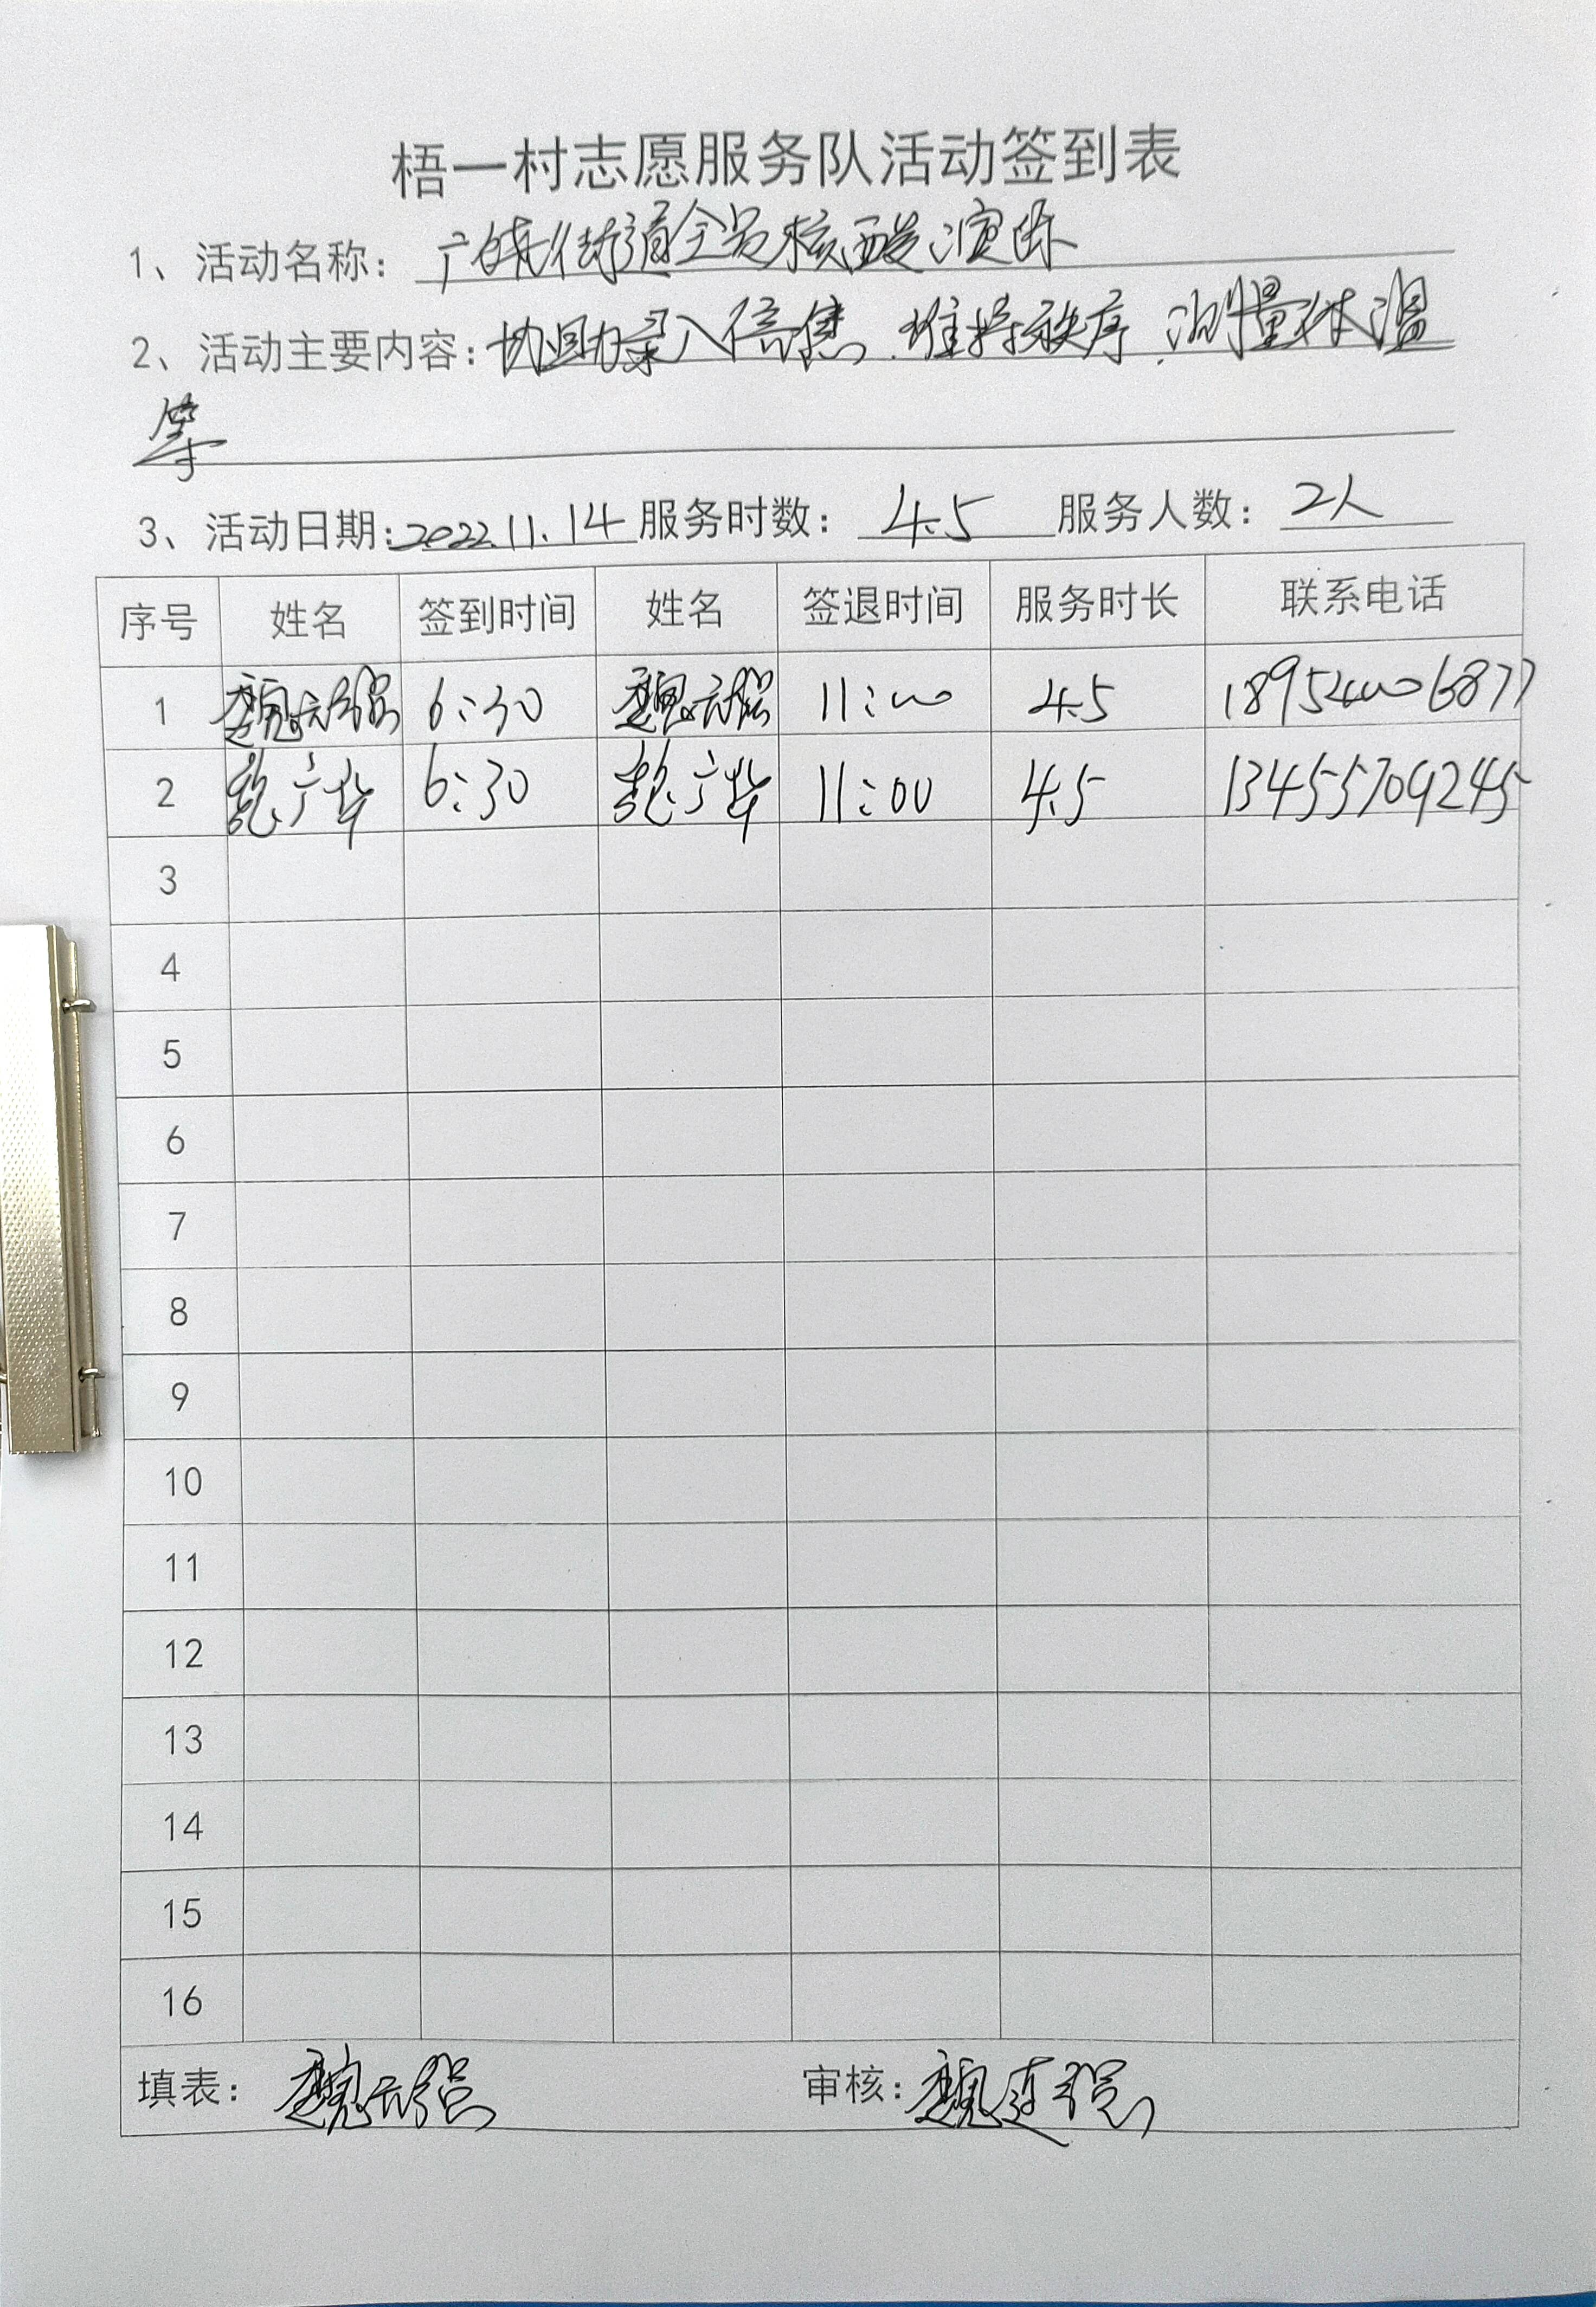 梧一村志愿服务队活动签到表
1、活动名称: 广饶街道全员核酸演练
2、活动主要内容: 协助录入信息、维持秩序、测量体温
等
3、活动日期: 2022.11.14 服务时数: 4.5 服务人数: 2人
序号 姓名 签到时间 姓名 签退时间 服务时长 联系电话
1 魏 强 6:30 魏 强 11:00 4.5 18954006877
2 广华 6:30 广华 11:00 4.5 13455709245
3
4
5
6
7
8
9
10
11
12
13
14
15
16
填表: 魏 强 审核: 魏连强